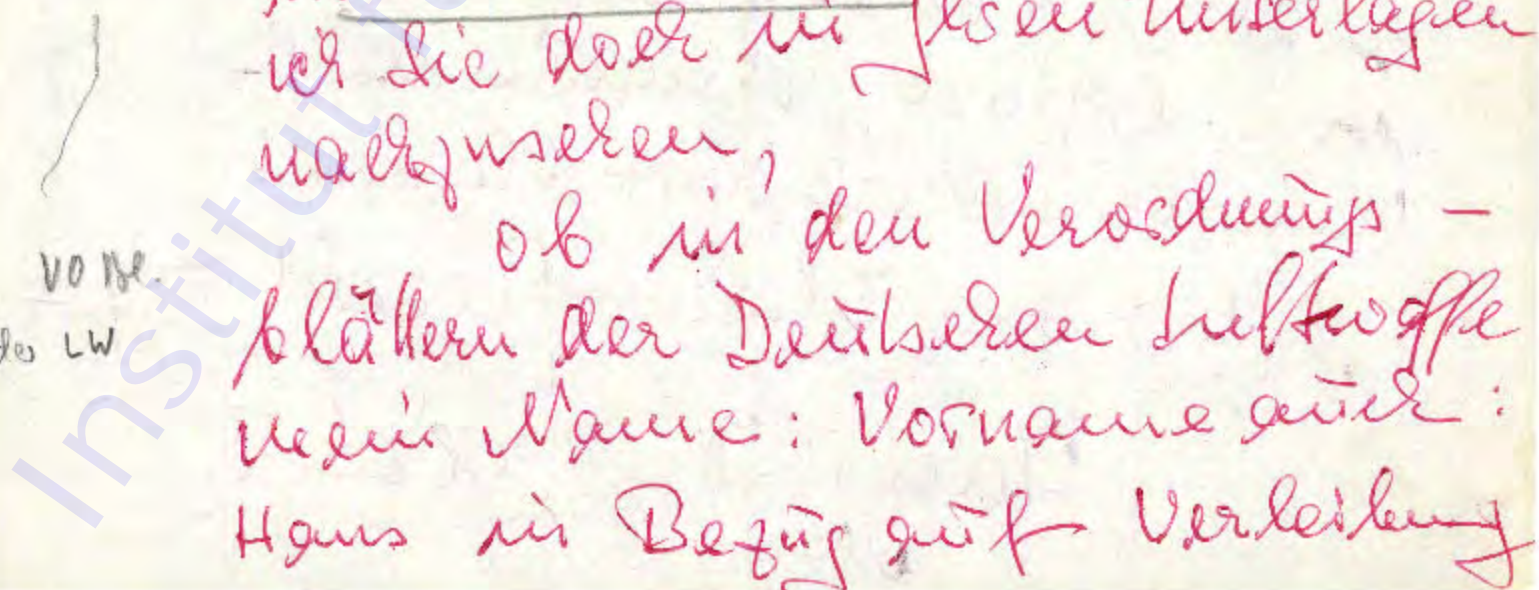 ich Sie doch in Jhren Unterlagen
nachzusehen,
ob in den Verordnungs -
VO Bl.
blättern der Deutschen Luftwaffe
des LW
mein Name: Vorname auch:
Hans in Bezug auf Verleihung
Institut